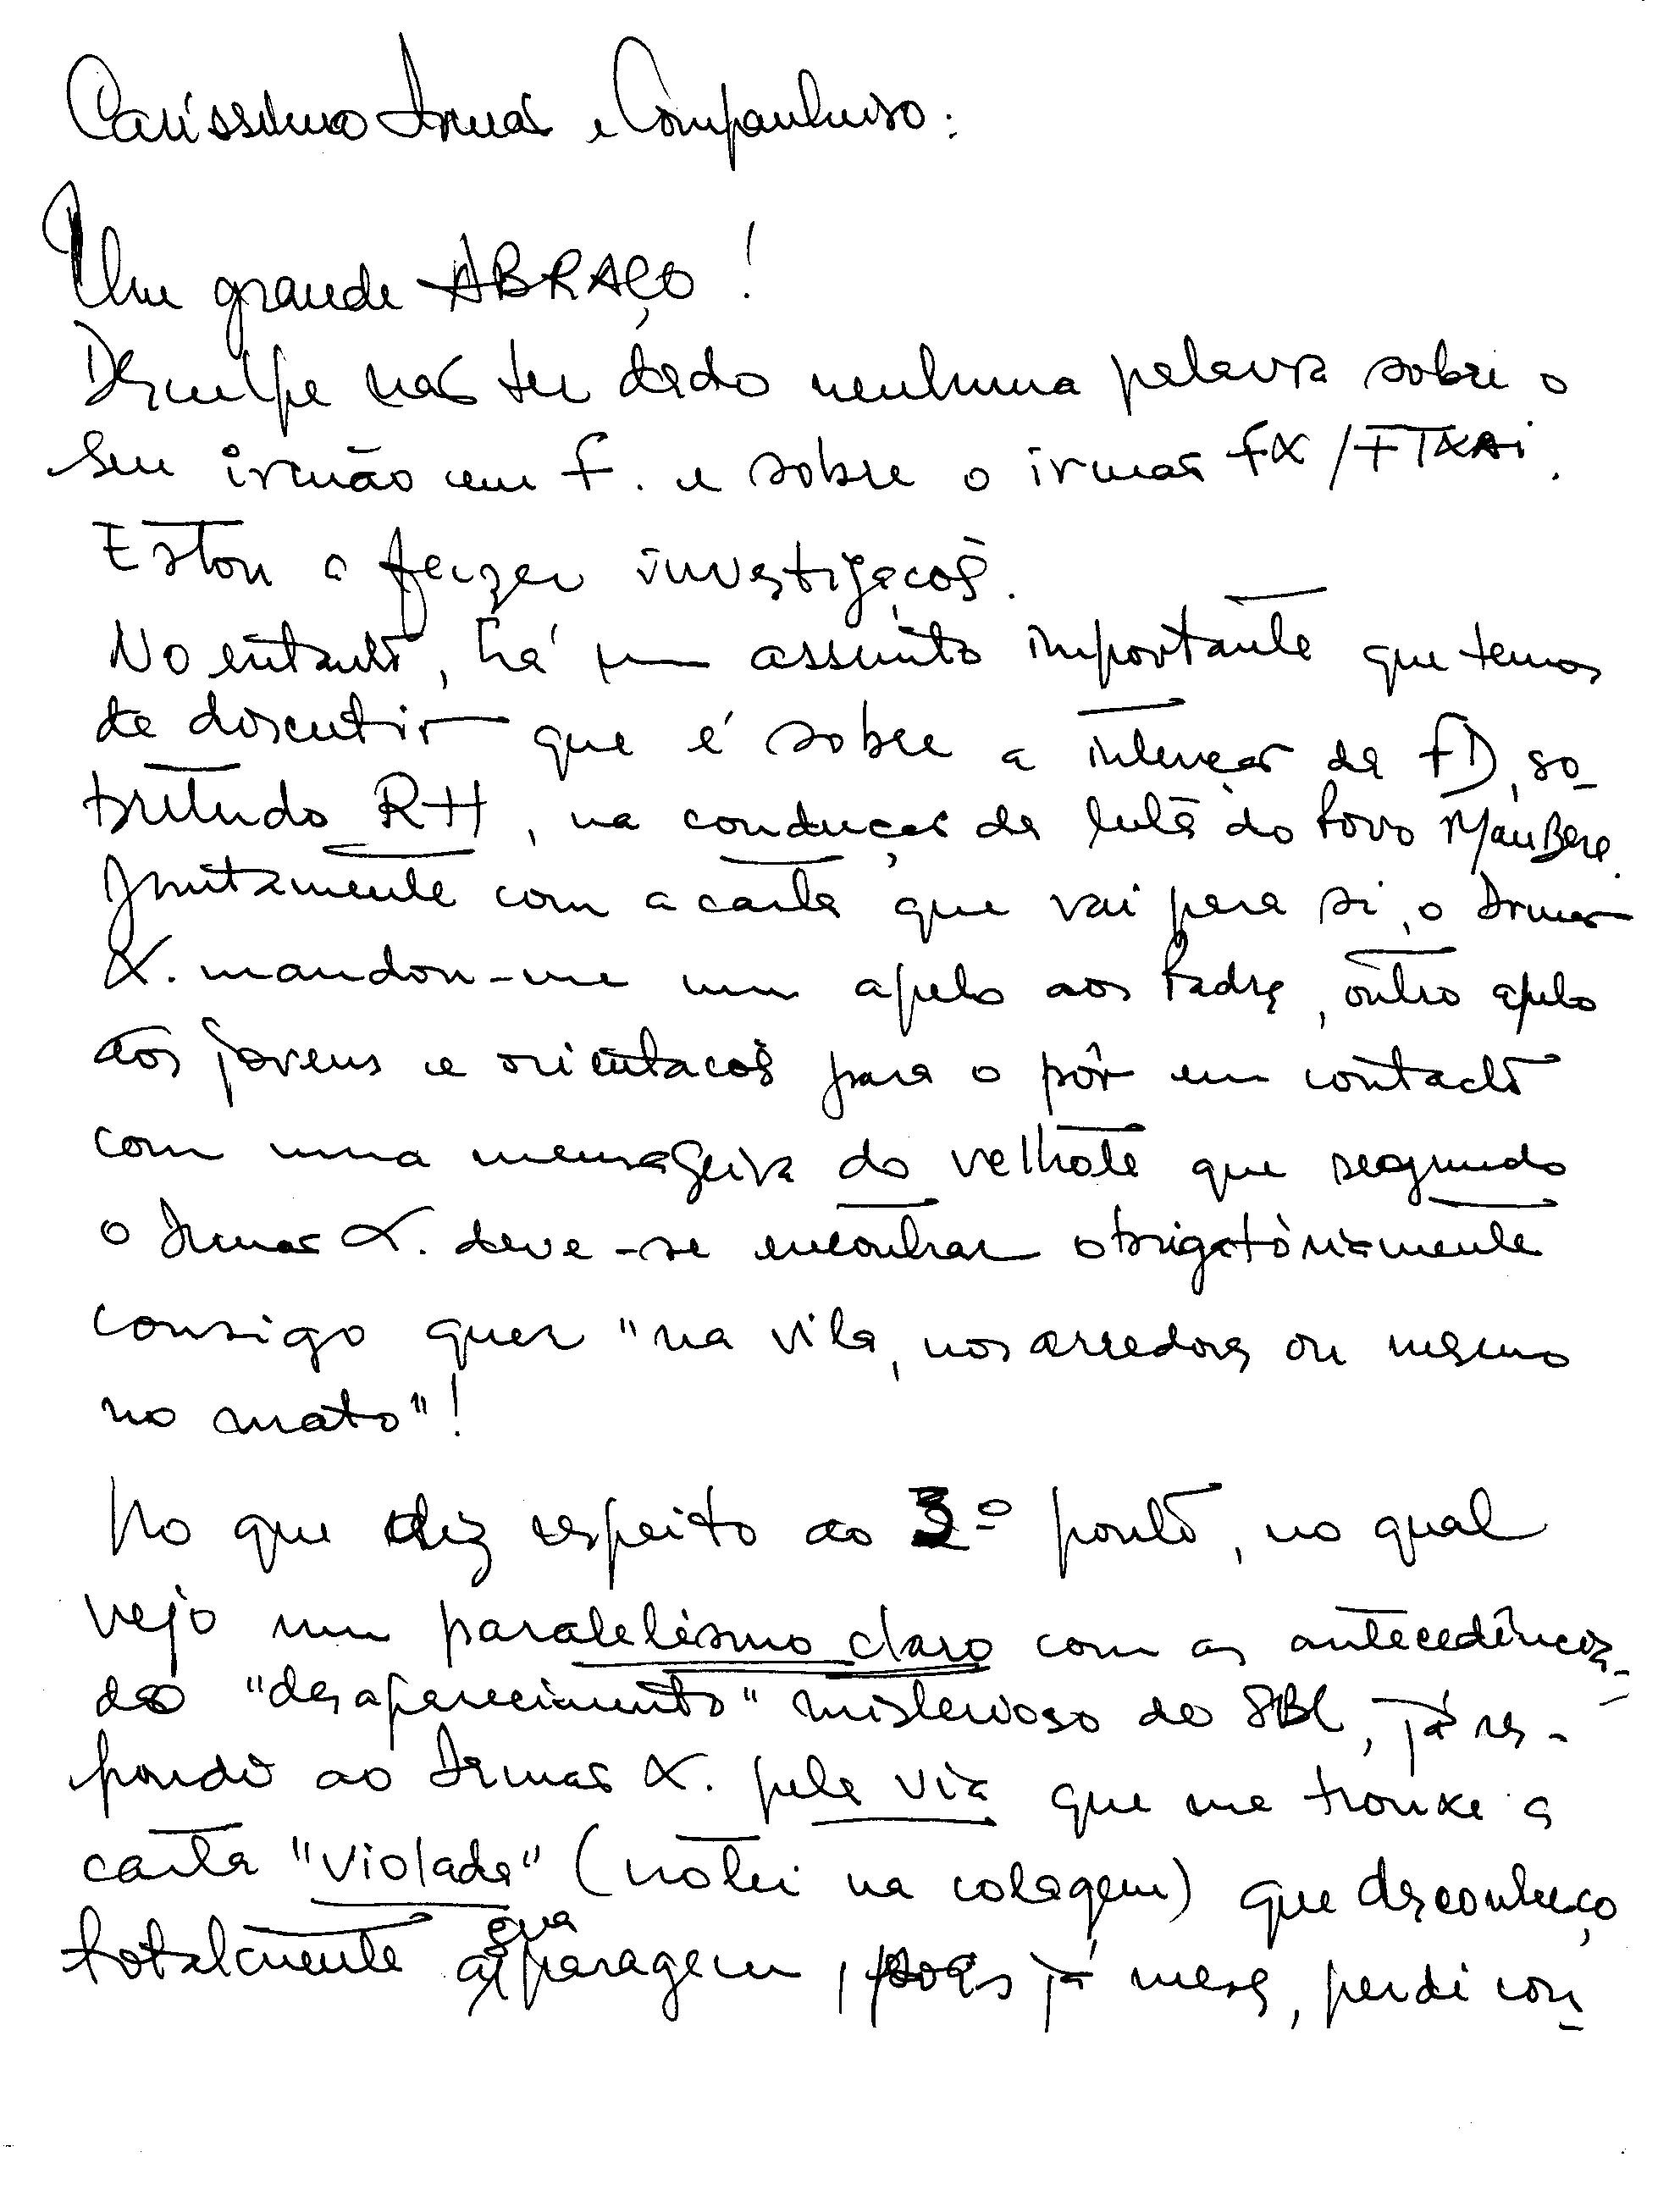 Caríssimo Irmão e Companheiro:
Um grande ABRAÇO!
Desculpe não ter dado nenhuma palavra sobre o
seu irmão em F. e sobre o irmão FX/FTXAi.
Estou a fazer investigações.
No entanto, há um assunto importante que temos
de discutir que é sobre a intenção da FD, so-
bretudo RH, na condução da luta do Povo MauBere.
Juntamente com a carta que vai para si, o Irmão
X. mandou-me um apelo aos Padres, outro apelo
aos jovens e orientações para o pôr em contacto
com uma mensageira do velhote que segundo
o Irmão X. deve-se encontrar obrigatòriamente
consigo quer "na vila, nos arredores ou mesmo
no mato"!
No que diz respeito ao 3º ponto, no qual
vejo um paralelismo claro com as antecedências
do "desaparecimento" misterioso do SBC, já res-
pondi ao Irmão X. pela via que me trouxe a
carta "violada" (notei na colagem) que desconheço
totalmente a sua paragem, pois já meses, perdi con-